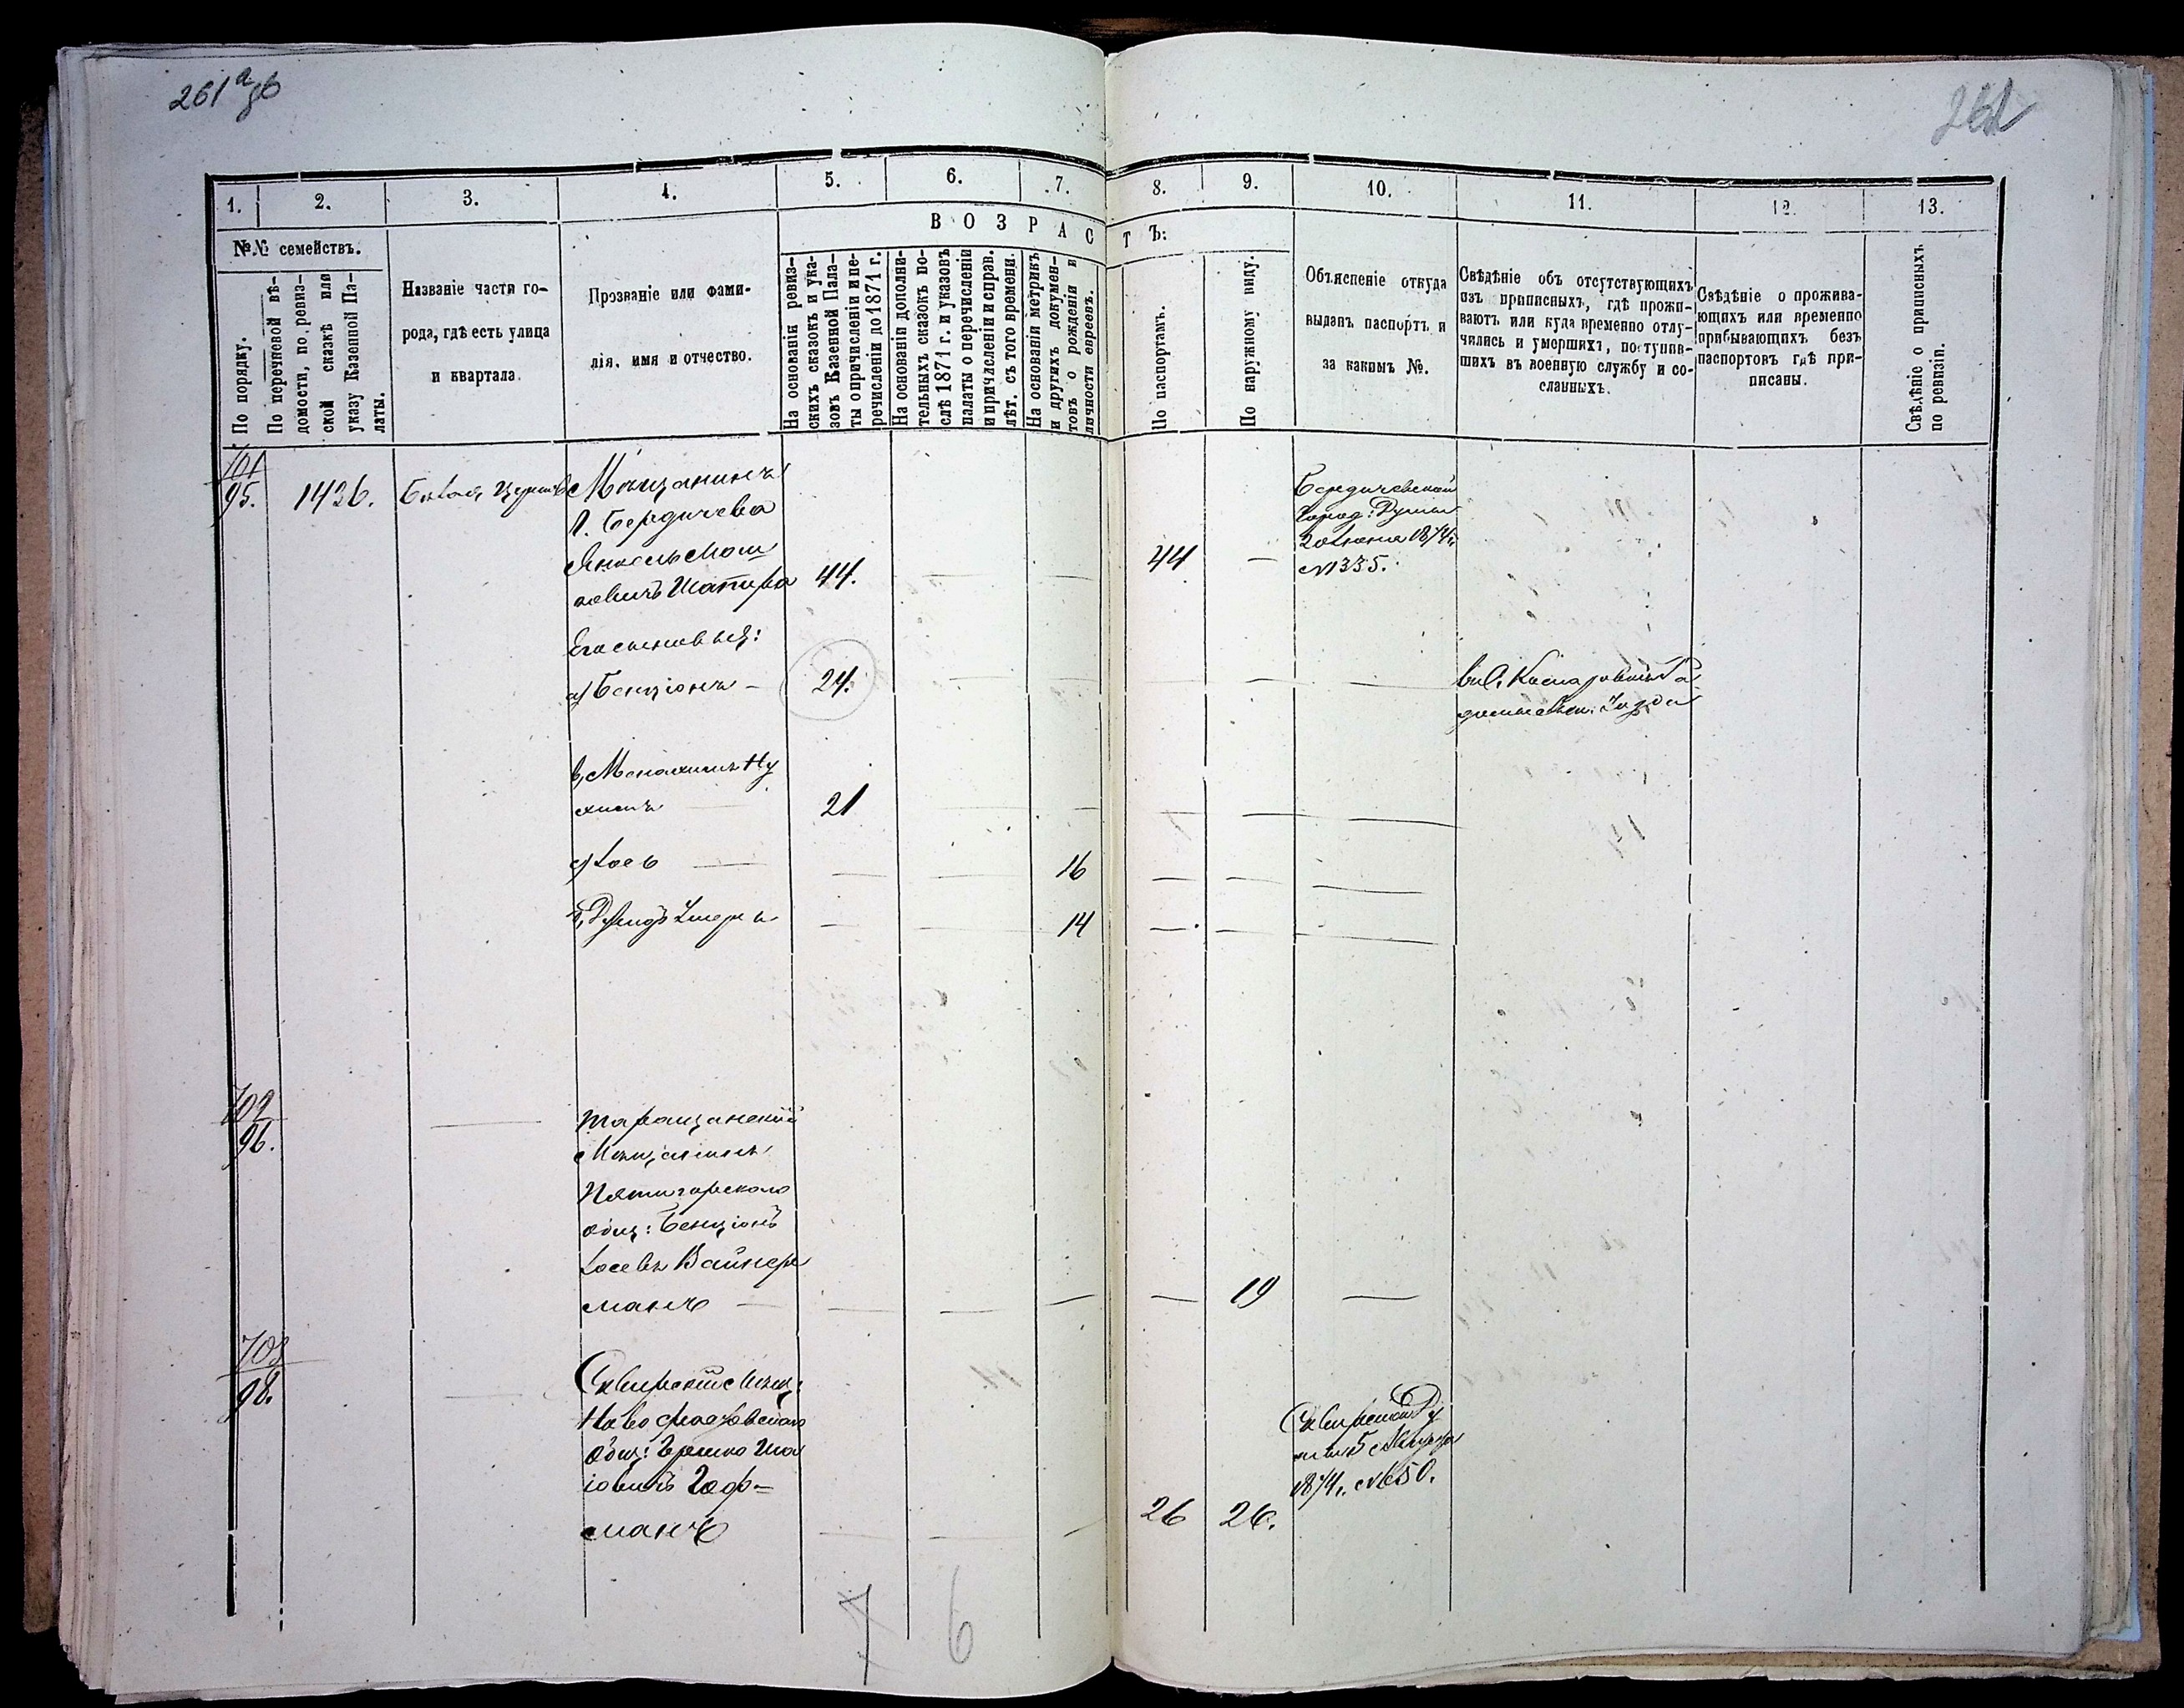 261
1. 2. 3. 4. 5. 6. 7. 8. 9. 10. 11. 12. 13.
№№ семействъ.
По порядку.
По перечневой вѣ-
домости, по ревиз-
ской сказкѣ или
указу Казенной Па-
латы.
Названіе части го-
рода, гдѣ есть улица
и квартала.
Прозваніе или фами-
лія, имя и отчество.
ВОЗРАСТЪ:
На основаніи ревиз-
скихъ сказокъ и ука-
зовъ Казенной Пала-
ты о причисленіи и пе-
речисленіи до 1871 г.
На основаніи дополни-
тельныхъ сказокъ по-
слѣ 1871 г. и указовъ
палаты о перечисленіи
и причисленіи и справ.
лѣт. съ того времени.
На основаніи метрикъ
и другихъ докумен-
товъ о рожденіи и
личности евреевъ.
По паспортамъ.
По наружному виду.
Объясненіе откуда
выданъ паспортъ и
за какимъ №.
Свѣдѣніе объ отсутствующихъ
изъ приписныхъ, гдѣ прожи-
ваютъ или куда временно отлу-
чились и умершихъ, поступив-
шихъ въ военную службу и со-
сланныхъ.
Свѣдѣніе о прожива-
ющихъ или временно
прибывающихъ безъ
паспортовъ гдѣ при-
писаны.
Свѣдѣніе о приписныхъ
по ревизіи.
701
95. 1426. Бѣлая Церковь Мѣщанинъ
г. Бердичева
Янкель Мош
ковичъ Шапира 44. — — 44 —
Бердичевской
Город: Думы
20 Іюня 1874 г.
№ 335.
Его сыновья:
а) Бенціонъ — 24.
в, Менахимъ Ну
химъ — 21
с) Іось — 16
д, Дувидъ Умеръ 14
702
96. — Таращанскій
Мѣщанинъ
Пятигорскаго
общ: Бенціонъ
Іосевъ Вайнер
манъ — 19 —
703
98. — Сквирскій Мѣщ:
Ново
Общ: Гершко Ша
іовичъ Гоф-
манъ 26 26.
Сквирской Ду
мы 5 Марта
1874 г. № 650.
7 6